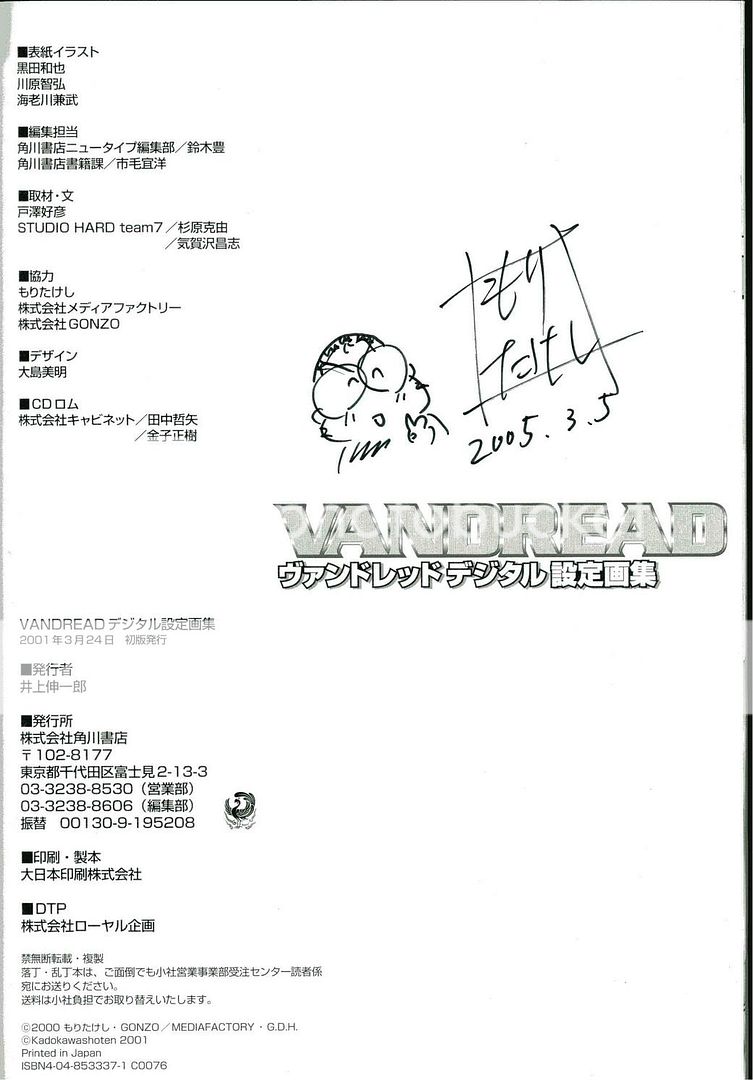 ■表紙イラスト
黒田和也
川原智弘
海老川兼武
■編集担当
角川書店ニュータイプ編集部／鈴木豊
角川書店書籍課／市毛宜洋
■取材・文
戸澤好彦
STUDIO HARD team7／杉原克由
／気賀沢昌志
■協力
もりたけし
株式会社メディアファクトリー
株式会社GONZO
■デザイン
大島美明
■CDロム
株式会社キャビネット／田中哲矢
／金子正樹
もり
たけし
2005.3.5
VANDREAD
ヴァンドレッド デジタル設定画集
VANDREADデジタル設定画集
2001年3月24日 初版発行
■発行者
井上伸一郎
■発行所
株式会社角川書店
〒102-8177
東京都千代田区富士見2-13-3
03-3238-8530（営業部）
03-3238-8606（編集部）
振替 00130-9-195208
■印刷・製本
大日本印刷株式会社
■DTP
株式会社ローヤル企画
禁無断転載・複製
落丁・乱丁本は、ご面倒でも小社営業事業部受注センター読者係
宛にお送りください。
送料は小社負担でお取り替えいたします。
©2000 もりたけし・GONZO／MEDIAFACTORY・G.D.H.
©Kadokawashoten 2001
Printed in Japan
ISBN4-04-853337-1 C0076